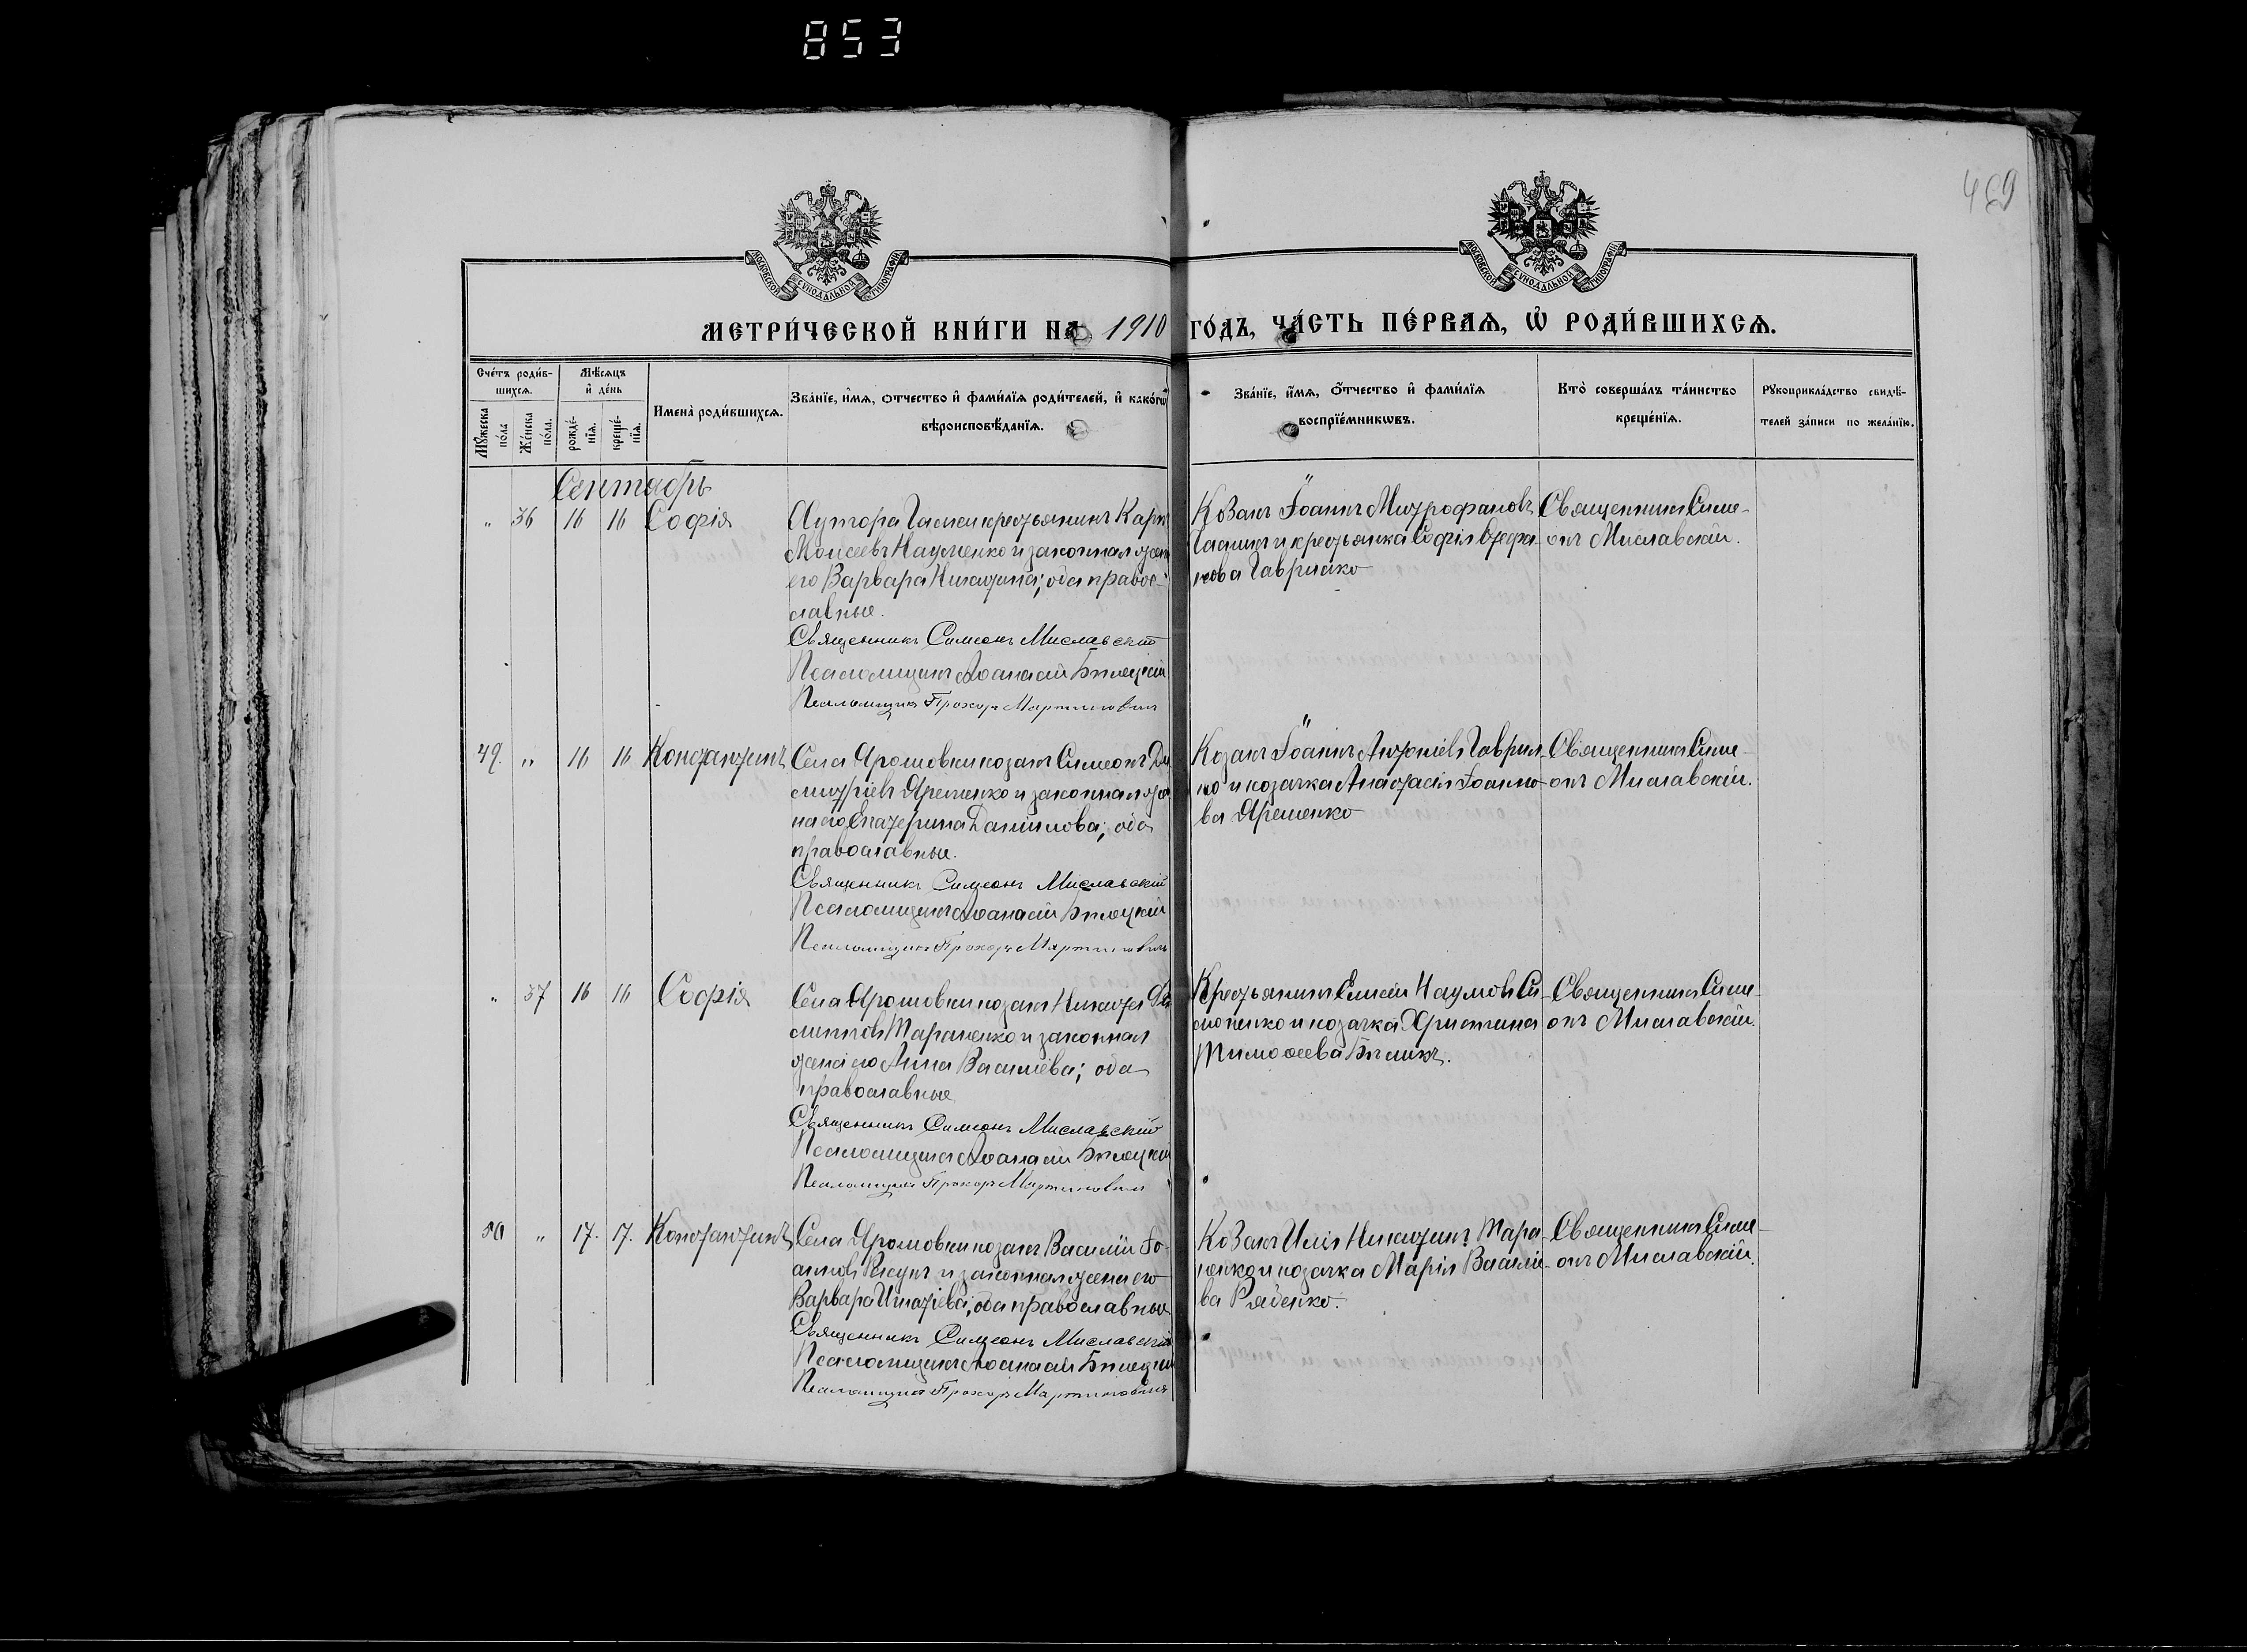 853
469
МОСКОВСКОЙ СѴНОДАЛЬНОЙ ТИПОГРАФІИ
МОСКОВСКОЙ СѴНОДАЛЬНОЙ ТИПОГРАФІИ
МЕТРИ́ЧЕСКОЙ КНИ́ГИ НА 1910 ГО́ДЪ, ЧА́СТЬ ПЕ́РВАѦ, Ѡ҆ РОДИ́ВШИХСѦ.
Сче́тъ роди́в-
шихсѧ.
Мѣ́сѧцъ
и҆ де́нь
Мꙋ́жеска
пола
Же́нска
по́ла.
рожде́-
нїѧ.
креще́-
нїѧ.
Имена̀ роди́вшихсѧ.
Зва́нїе, и҆́мѧ, ѻтчество и҆ фами́лїѧ роди́телей, и҆ како́гѡ
вѣроисповѣ́данїѧ.
Зва́нїе, и҆́мѧ, ѻ҆́тчество и҆ фами́лїѧ
воспрїе́мникѡвъ.
Кто̀ соверша́лъ та́инство
креще́нїѧ.
Рꙋкоприкла́дство свидѣ́-
телей за́писи по жела́нїю.
Сентябрь
" 36 16 16 Софія
Хутора крестьянинъ Карп
Моисеевъ Науменко и законная жен
его Варвара Никитина; оба право-
славные.
Священникъ Симеонъ Миславскій
Псаломщикъ Аѳанасій Бѣлецкій
Псаломщикъ Прохоръ Мартиновичъ
Козакъ Іоаннъ Митрофановъ
и крестьянка Софія Стефа-
нова Гаврилко
Священникъ Симе-
онъ Миславскій.
49. " 16 16 Константинъ
Села Ярошовки козакъ Симеонъ Ди
митріевъ Яременко и законная же
на его Екатерина Даниилова; оба
православные.
Священникъ Симеонъ Миславскій
Псаломщикъ Аѳанасій Бѣлецкій
Псаломщикъ Прохоръ Мартиновичъ
Козакъ Іоаннъ Антоніевъ Гаврил
ко и козачка Анастасія Іоанно-
ва Яременко
Священникъ Симе-
онъ Миславскій.
" 37 16 16 Софія
Села Ярошовки козакъ Никита
Тараненко и законная
жена его Анна Василіева; оба
православные
Священникъ Симеонъ Миславскій
Псаломщикъ Аѳанасій Бѣлецкій
Псаломщикъ Прохоръ Мартиновичъ
Крестьянинъ Наумовъ Си-
моненко и козачка Христина
Тимоѳеева Бѣликъ.
Священникъ Симе-
онъ Миславскій.
50 " 17. 17. Константинъ
Села Ярошовки козакъ Василій Іо-
анновъ и законная жена его
Варвара Игнатіева; оба православные
Священникъ Симеонъ Миславскій
Псаломщикъ Аѳанасій Бѣлецкій
Псаломщикъ Прохоръ Мартиновичъ
Козакъ Илія Никитинъ Тара-
ненко и козачка Марія Василіе-
ва Рябенко.
Священникъ Симе-
онъ Миславскій.